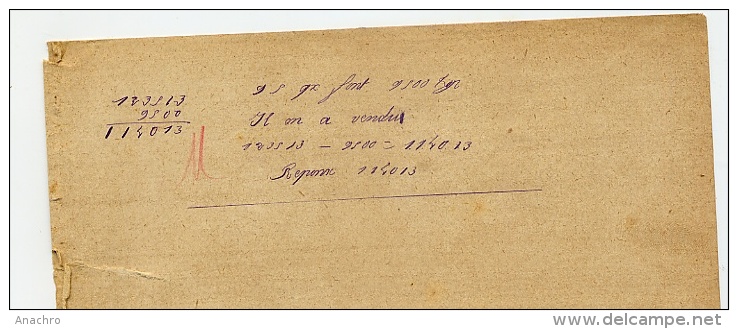 123513
9500
114013
95 qx font 9500 kg
Il en a vendu
123513 - 9500 = 114013
Reponse 114013
Anachro
www.delcampe.net